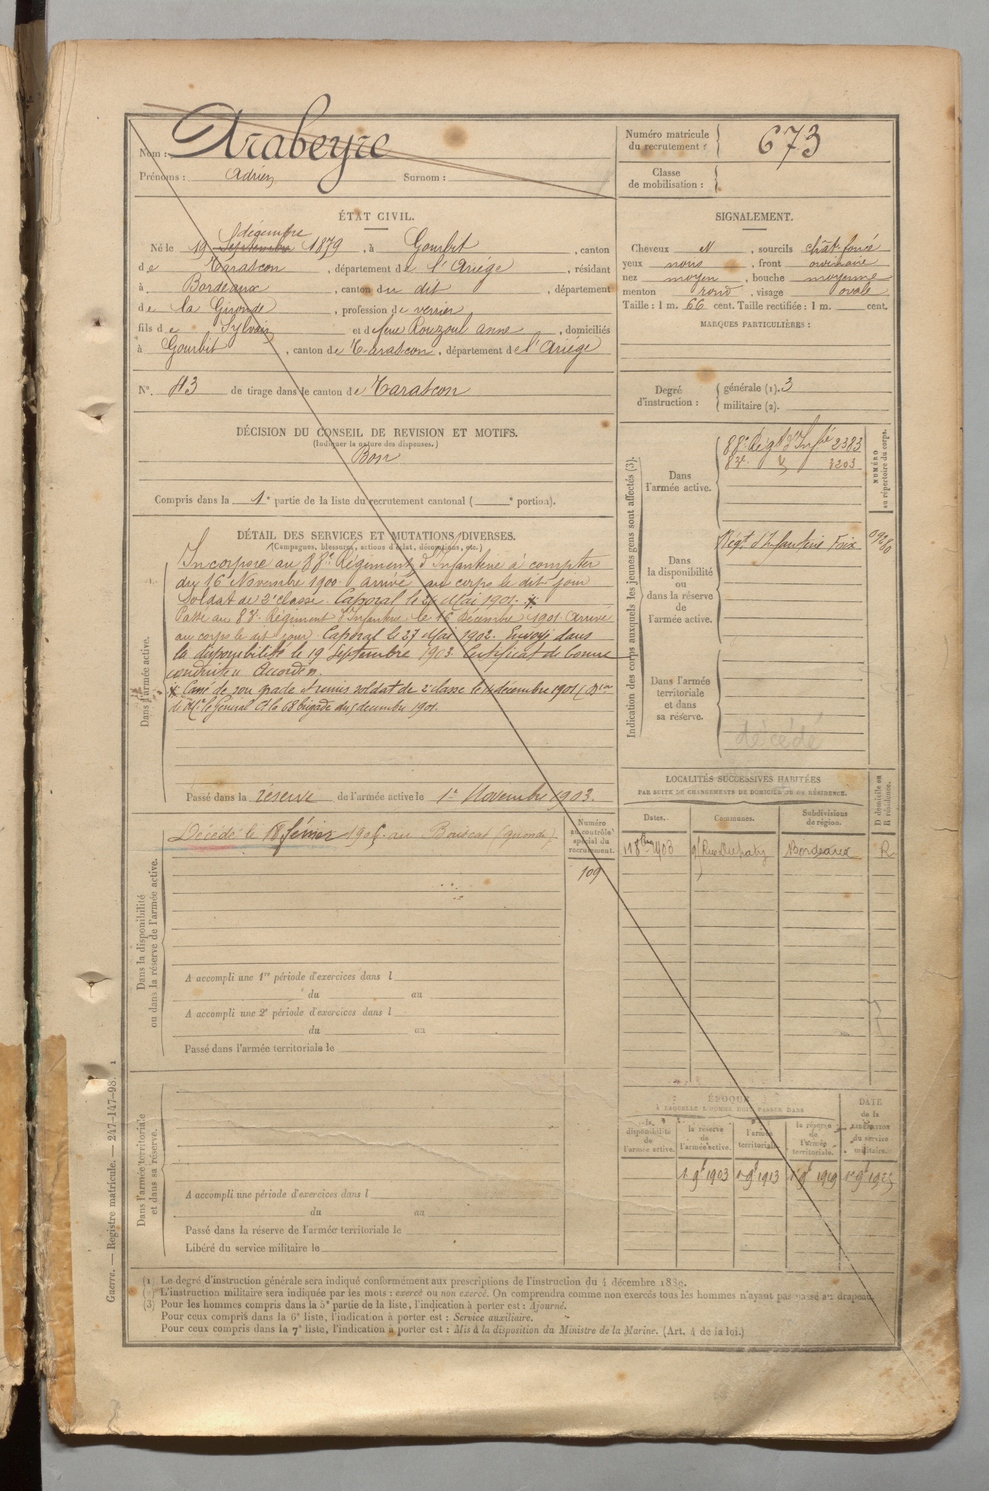 Nom : Arabeyre
Prénoms : Adrien Surnom :
Numéro matricule du recrutement : 673
Classe de mobilisation :
ÉTAT CIVIL.
décembre
Né le 19 Septembre 1879, à Gourbit, canton
de Tarascon, département de l'Ariège, résidant
à Bordeaux, canton du dit, département
de la Gironde, profession de verrier
fils de Sylvain et de feue Rouzoul Anne, domiciliés
à Gourbit, canton de Tarascon, département de l'Ariège
N° 43 de tirage dans le canton de Tarascon
SIGNALEMENT.
Cheveux N, sourcils chât. foncé
yeux noirs, front ordinaire
nez moyen, bouche moyenne
menton rond, visage ovale
Taille : 1 m. 66 cent. Taille rectifiée : 1 m. cent.
MARQUES PARTICULIÈRES :
Degré d'instruction : générale (1). 3
militaire (2).
DÉCISION DU CONSEIL DE REVISION ET MOTIFS.
(Indiquer la nature des dispenses.)
Bon
Compris dans la 1e partie de la liste du recrutement cantonal ( e portion).
DÉTAIL DES SERVICES ET MUTATIONS DIVERSES.
(Campagnes, blessures, actions d'éclat, décorations, etc.)
Dans l'armée active.
Incorporé au 88e Régiment d'Infanterie à compter
du 16 Novembre 1900 arrivé au corps le dit jour
Soldat de 2e classe. Caporal le 21 Mai 1901.
Passé au 87e Régiment d'Infanterie le 16 Décembre 1901 Arrivé
au corps le dit jour Caporal le 27 Mai 1902. Envoyé dans
la disponibilité le 19 Septembre 1903. Certificat de bonne
conduite "Accordé".
Cassé de son grade et remis soldat de 2e classe le 11 décembre 1901 (
le Général Ct la 68 brigade du décembre 1901.
Passé dans la réserve de l'armée active le 1er Novembre 1903.
Indication des corps auxquels les jeunes gens sont affectés (3).
NUMÉRO au répertoire du corps.
Dans l'armée active.
88e Régt d'Infie 2383
87e 3203
Dans la disponibilité ou dans la réserve de l'armée active.
Régt d'Infanterie Foix
Dans l'armée territoriale et dans sa réserve.
décédé
Dans la disponibilité ou dans la réserve de l'armée active.
Décédé le 18 février 190 au Bouscat (Gironde).
Numéro au contrôle spécial du recrutement.
109
A accompli une 1re période d'exercices dans l
du au
A accompli une 2e période d'exercices dans l
du au
Passé dans l'armée territoriale le
LOCALITÉS SUCCESSIVES HABITÉES
PAR SUITE DE CHANGEMENTS DE DOMICILE OU DE RÉSIDENCE.
Dates. Communes. Subdivisions de région. D domicile ou R résidence.
1903 Rue Bordeaux R
Dans l'armée territoriale et dans sa réserve.
A accompli une période d'exercices dans l
du au
Passé dans la réserve de l'armée territoriale le
Libéré du service militaire le
ÉPOQUE
À LAQUELLE L'HOMME DOIT PASSER DANS
la disponibilité de l'armée active. la réserve de l'armée active. l'armée territoriale. la réserve de l'armée territoriale.
DATE de la LIBÉRATION du service militaire.
1 9bre 1903 1 9bre 1913 1 9bre 1919 1 9bre 1925
(1) Le degré d'instruction générale sera indiqué conformément aux prescriptions de l'instruction du 4 décembre 1889.
(2) L'instruction militaire sera indiquée par les mots : exercé ou non exercé. On comprendra comme non exercés tous les hommes n'ayant pas passé au drapeau.
(3) Pour les hommes compris dans la 5e partie de la liste, l'indication à porter est : Ajourné.
Pour ceux compris dans la 6e liste, l'indication à porter est : Service auxiliaire.
Pour ceux compris dans la 7e liste, l'indication à porter est : Mis à la disposition du Ministre de la Marine. (Art. 4 de la loi.)
Guerre. — Registre matricule. — 247-147-98.